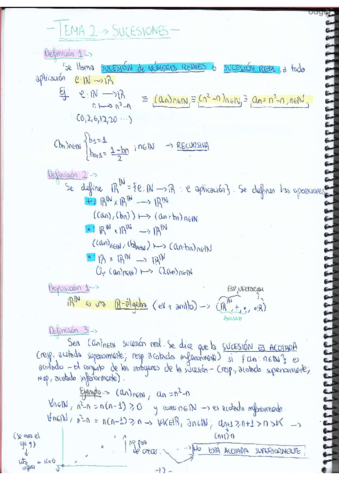 - TEMA 2 → SUCESIONES -
Definición 1 →
Se llama SUCESIÓN de NÚMEROS REALES o SUCESIÓN REAL a toda
aplicación φ: ℕ → ℝ
Ej φ: ℕ → ℝ ≡ (an)n∈ℕ ≡ (n²-n)n∈ℕ ≡ an = n²-n, n∈ℕ
n ↦ n²-n
(0,2,6,12,20 ...)
(bn)n∈ℕ { b1=1
bn+1 = 1-bn/2 ; n∈ℕ → RECURSIVA
Definición 2 →
Se define ℝ^ℕ = {φ: ℕ → ℝ : φ aplicación}. Se definen las operaciones
+: ℝ^ℕ × ℝ^ℕ → ℝ^ℕ
((an), (bn)) ↦ (an+bn)n∈ℕ
•: ℝ^ℕ × ℝ^ℕ → ℝ^ℕ
((an)n∈ℕ, (bn)n∈ℕ) ↦ (an·bn)n∈ℕ
•: ℝ × ℝ^ℕ → ℝ^ℕ
(λ, (an)n∈ℕ) ↦ (λan)n∈ℕ
Proposición 1 →
ℝ^ℕ es una ℝ-álgebra (ev + anillo) → (ℝ^ℕ, +, ·, ·ℝ)
Definición 3 →
Sea (an)n∈ℕ sucesión real. Se dice que la SUCESIÓN ES ACOTADA
(resp. acotada superiormente, resp. acotada inferiormente) si {an n∈ℕ} es
acotado - el conjunto de las imágenes de la sucesión - (resp. acotado superiormente,
resp. acotado inferiormente).
Ejemplo → (an)n∈ℕ, an = n²-n
∀n∈ℕ, n²-n = n(n-1) ≥ 0 y como n∈ℕ → es acotada inferiormente
∀n∈ℕ, n²-n = n(n-1) ≥ n → ∀K∈ℝ, ∃n∈ℕ, an+1 ≥ n+1 > n > K →
(n+1)n
No ESTÁ ACOTADA SUPERIORMENTE.
-1-